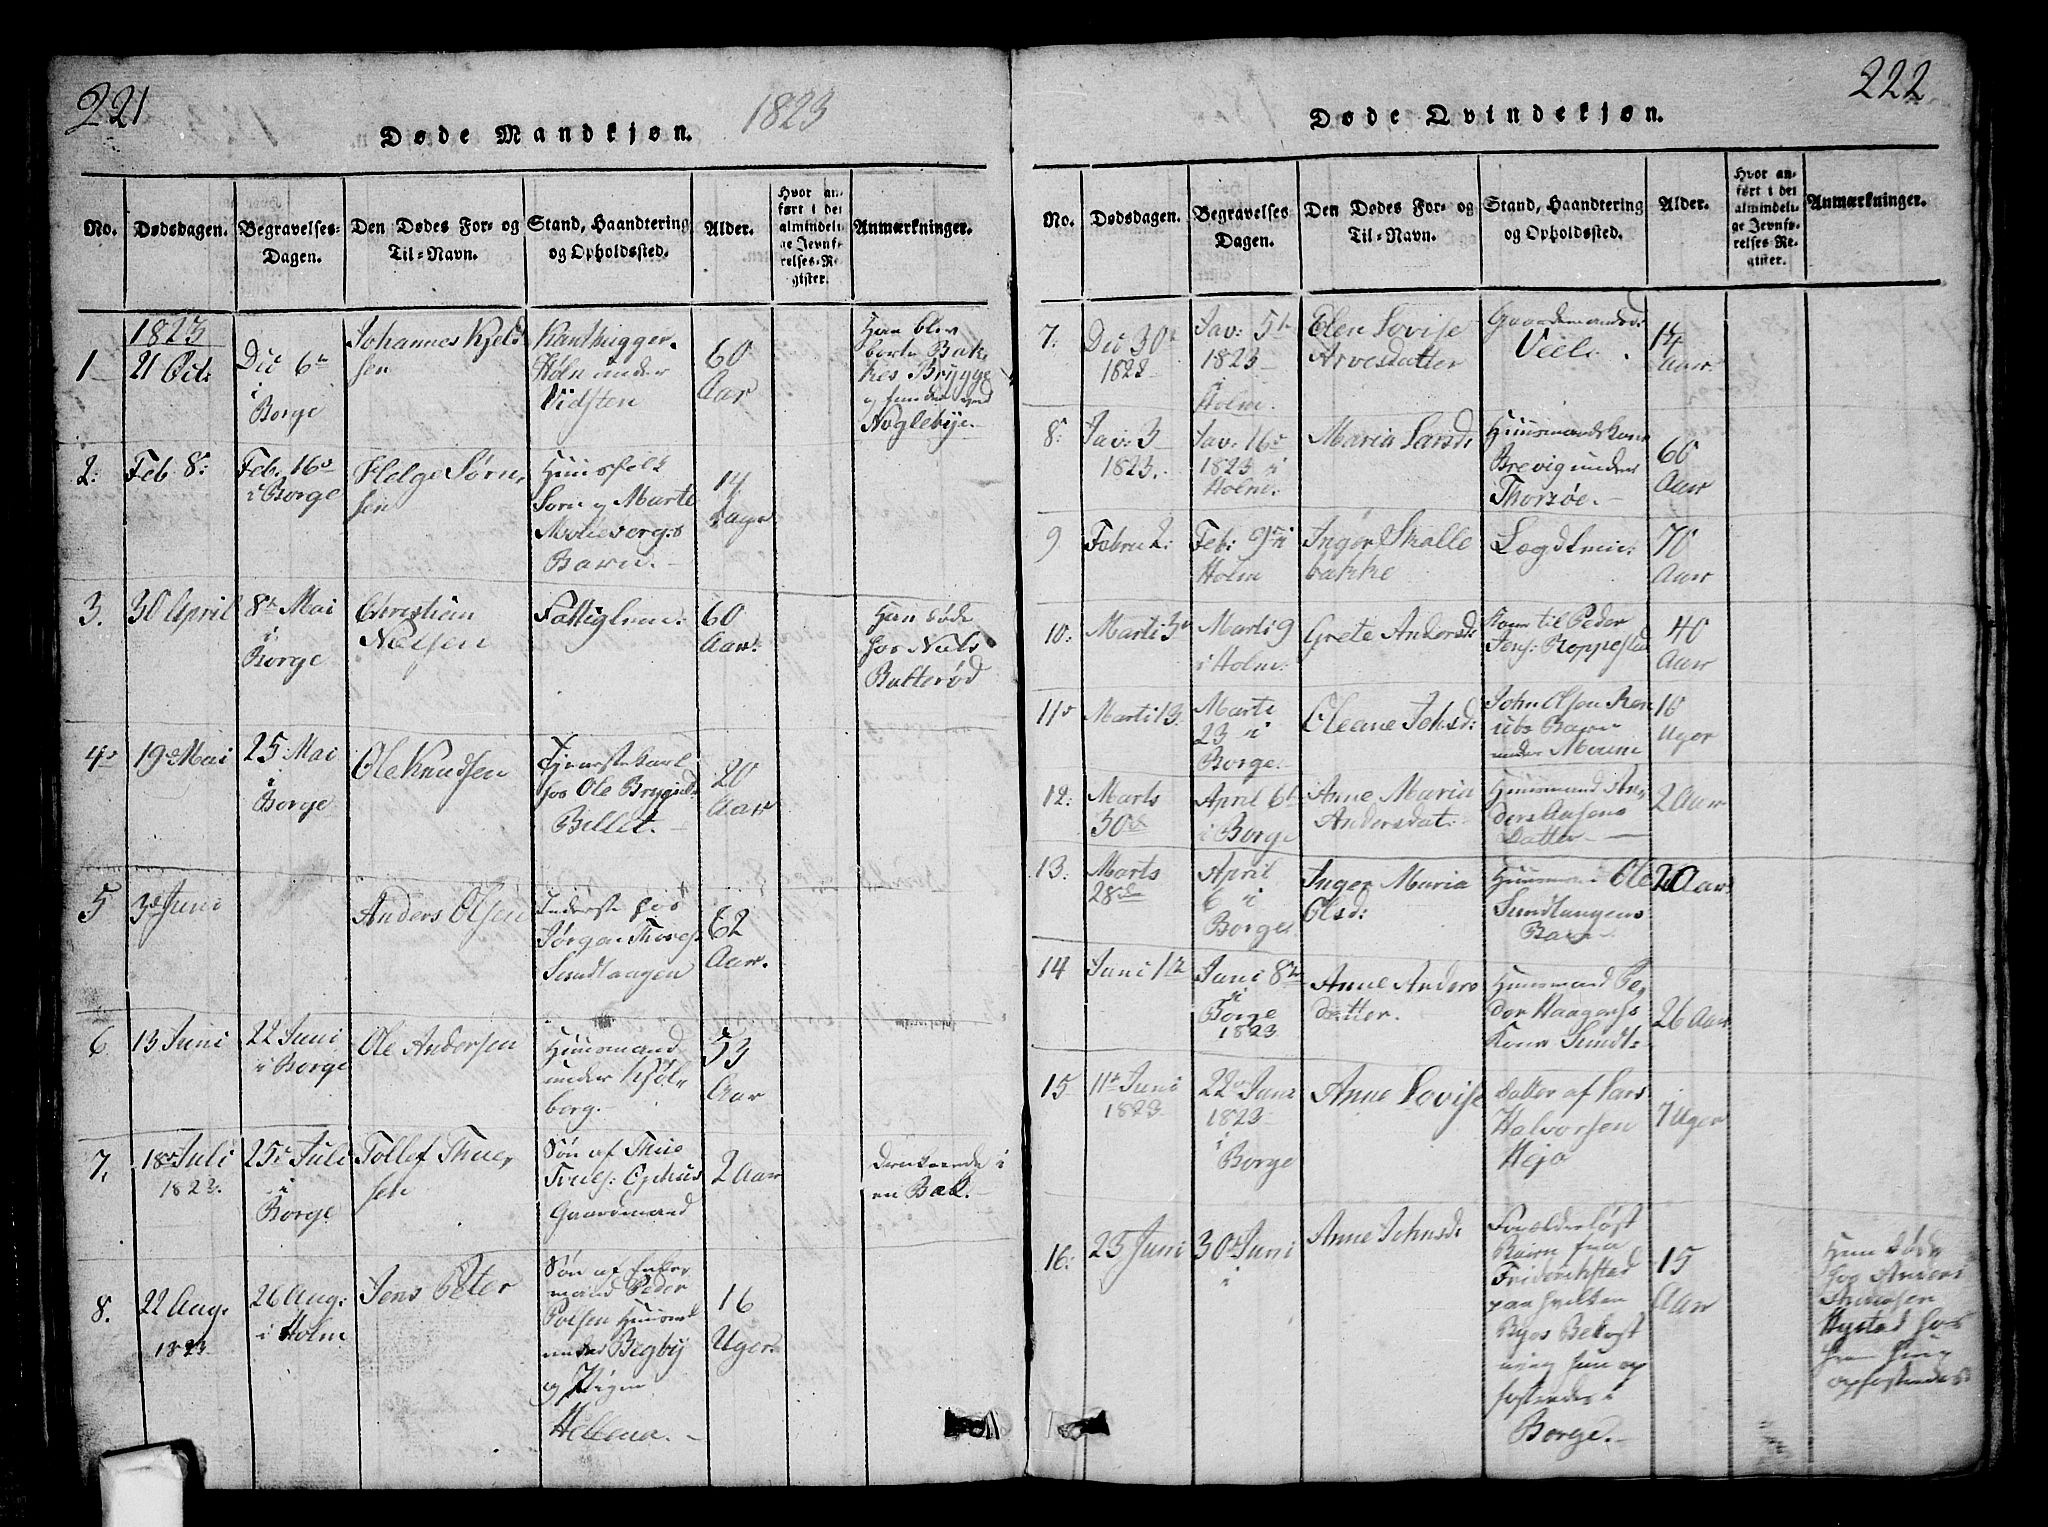 221
1823
Døde Mandkjøn.
No.
Dødsdagen.
Begravelses-
Dagen.
Den Dødes For- og
Til-Navn.
Stand, Haandtering
og Opholdssted.
Alder.
Hvor an-
ført i det
almindeli-
ge Jevnfø-
relses-Re-
gister.
Anmærkninger.
1823
1
21 Oct:
Dec 6te
i
Borge
Johannes Kjeld
sen
Kanthugger
Holm under
Vidsten
60
Aar
Han blev
borte
Brygge
Huglebye
2:
Feb 8:
Feb. 16de
i Borge
Helge Søren
sen
Huusfolk
Sørn og Marte
Barn.
14
Dage
3.
30 April
8de Mai
i
Borge
Christian
Nielsen
Fattiglem:
60
Aar:
Han døde
hos Niels
Butterød
4.
19de Mai
25 Mai
i
Borge
Ole Knudsen
Tjenestekarl
hos Ole
20
Aar
5
3de Juni
Anders Olsen
Inderste hos
Jørgen Thores:
Sundlaagen
62
Aar.
6
13 Juni
22 Juni
i Borge
Ole Andersen
Huusmand
under Kjøl
berg.
53
Aar
7.
18de Juli
1823.
25de Juli
i
Borge
Tollef Thue
sen
Søn af Thue
Truls:
Gaardmand
2 Aar
druknede i
en Bæk.
8.
22 Aug.
1823
26 Aug:
i Holm
Jens Peter
Søn af
mand Peder
Polsen Huusm
under Begby
og Pigen
Hellena.
16
Uger.
222
Døde Qvindekjøn.
No.
Dødsdagen.
Begravelses
Dagen.
Den Dødes For- og
Til-Navn.
Stand, Haandtering
og Opholdssted.
Alder.
Hvor an-
ført i det
almindeli-
ge Jevnfø-
relses-Re-
gister.
Anmærkninger.
7.
Dec 30te
1822
Jav: 5te
1823
i
Holm.
Elen Lovise
Arvesdatter
Gaardmandsd:
14
Aar
8:
Jav: 3
1823.
Jav: 16de
1823 i
Holm.
Maria Larsd:
Huusmandskone
Brevig under
Thorsøe.
60
Aar
9
Febru 2:
Feb: 9de i
Holm
Inger Skalle
bakke
Lægdlem:
70
Aar
10:
Marti 3de
Marti 9
i Holm:
Grete Andersd:
Kone til Peder
Jens: Roppestad
40
Aar
11te
Marti 13.
Marti
23 i
Borge
Oleane Johsd:
John Olsen
Barn
under Moum
10
Uger
12:
Marts
30de
April 6te
i Borge
Anne Maria
Andersdat:
Huusmand An
ders
Datter
2 Aar
13.
Marts
28de
April
6 i
Borge
Inger Maria
Olsd:
Huusmand Ole
Sundlaagens
Barn
20 Aar
14
Juni 1te
Juni 8de
i
Borge
1823
Anne Anders
datter.
Huusmand Pe
der Haagens:
Kone Sundl:
26 Aar
15
11te Juni
1823
22de Juni
1823
i
Borge
Anne Lovise
Datter af Lars
Halvorsen
Heja
7 Uger
16:
25 Juni
30de Juni
i
Anne Johnsd:
Forælderløst
Barn fra
Friderikstad
paa hvilken
Byes Bekost
ning hun op
fostredes i
Borge.
15
Aar
Hun døde
hos Anders
Hystad hos
hvem hun
opfostredes